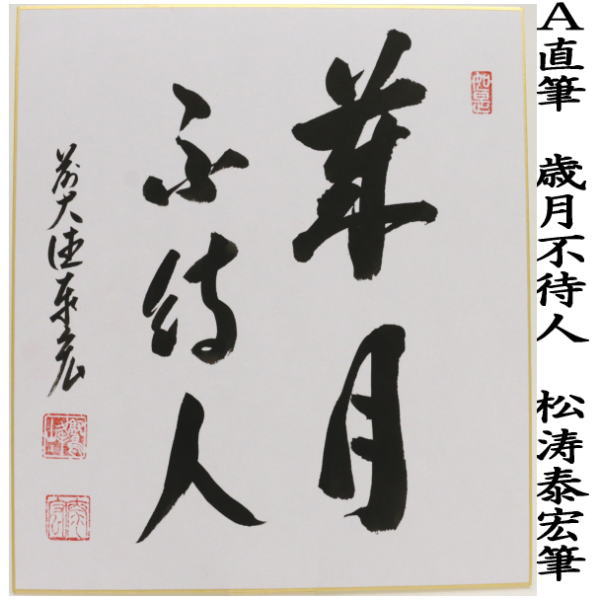 歳月
不待人
前大徳泰宏
A直筆 歳月不待人 松涛泰宏筆